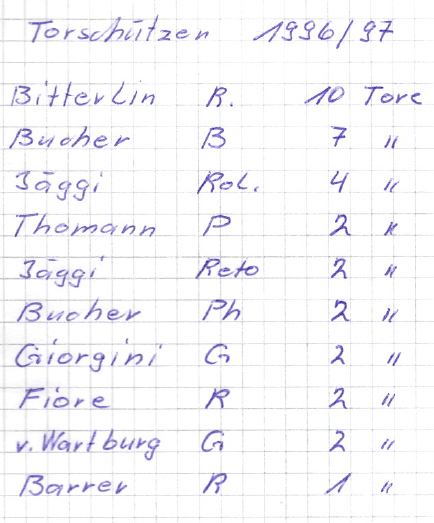 Torschützen 1996/97
Bitterlin R. 10 Tore
Bucher B 7 "
Jäggi Rol. 4 "
Thomann P 2 "
Jäggi Reto 2 "
Bucher Ph 2 "
Giorgini G 2 "
Fiore R 2 "
v. Wartburg G 2 "
Barrer R 1 "